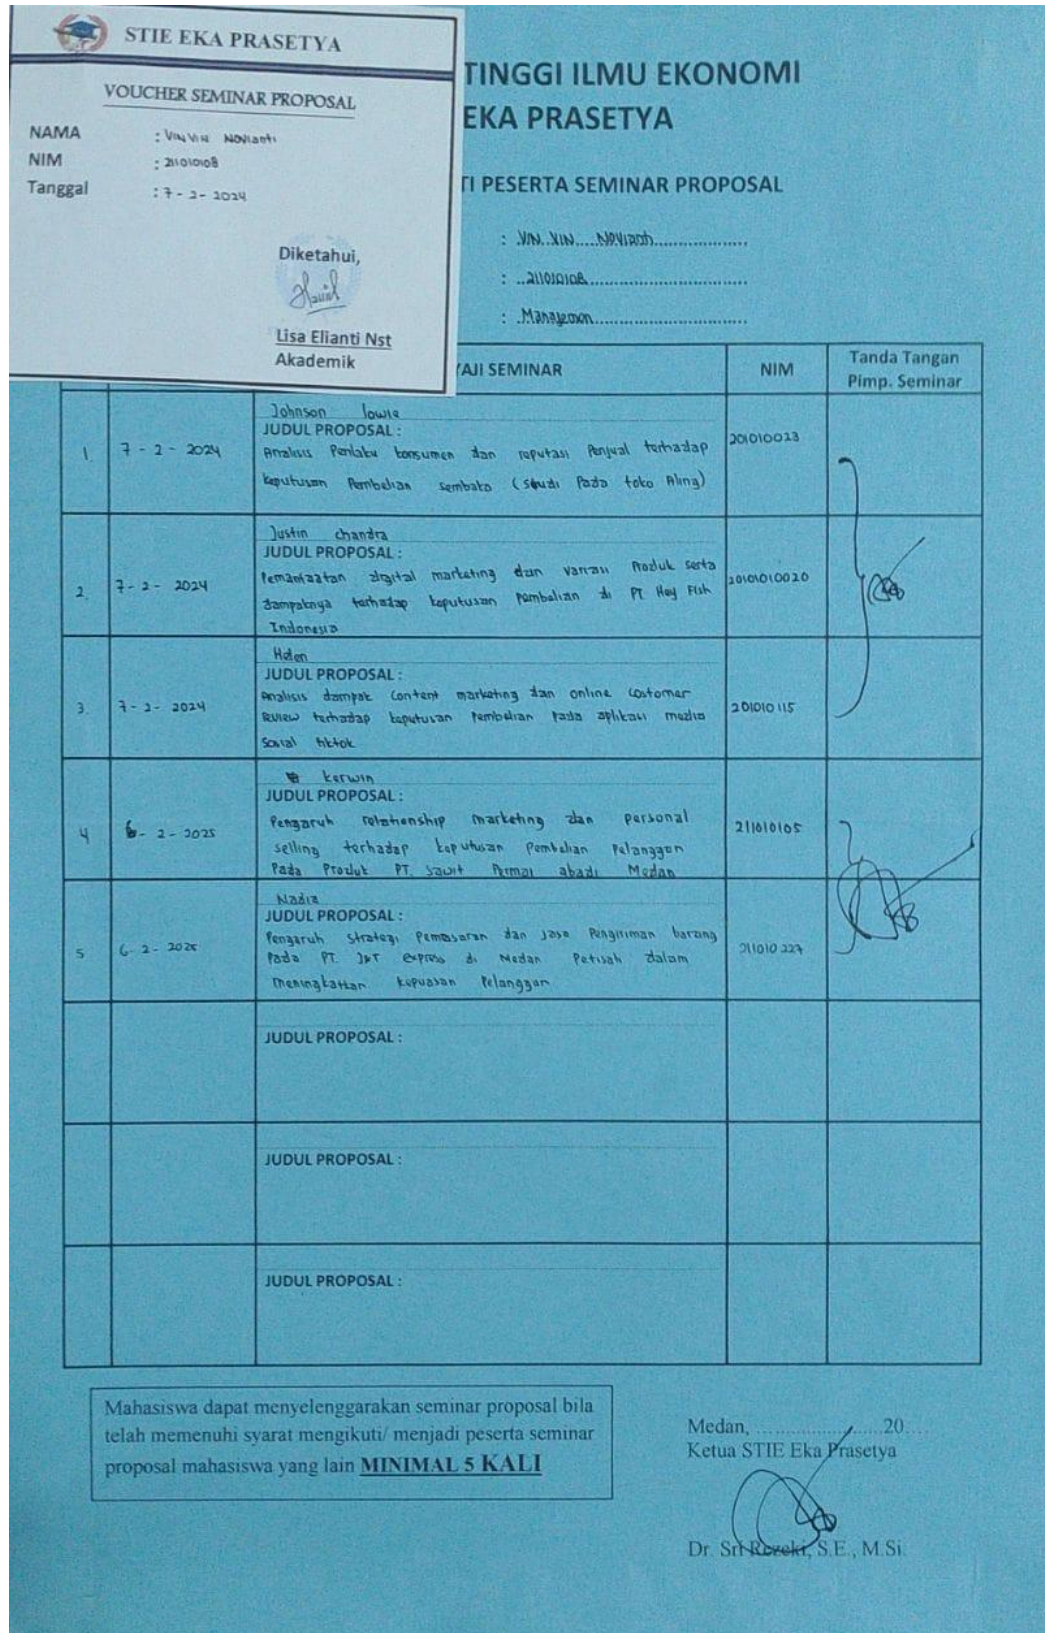 STIE EKA PRASETYA
VOUCHER SEMINAR PROPOSAL
NAMA : Vin Vin Novianti
NIM : 211010108
Tanggal : 7 - 2 - 2024
Diketahui,
Lisa Elianti Nst
Akademik
TINGGI ILMU EKONOMI
EKA PRASETYA
TI PESERTA SEMINAR PROPOSAL
: Vin Vin Novianti
: 211010108
: Manajemen
YAJI SEMINAR NIM Tanda Tangan
Pimp. Seminar
Johnson lowie
JUDUL PROPOSAL :
1. 7 - 2 - 2024 Analisis Perilaku konsumen dan reputasi Penjual terhadap 201010023
keputusan Pembelian sembako (studi Pada toko Aling)
Justin chandra
JUDUL PROPOSAL :
2. 7 - 2 - 2024 Pemanfaatan digital marketing dan variasi Produk serta 20101010020
dampaknya terhadap keputusan pembelian di PT Hey Fish
Indonesia
Helen
JUDUL PROPOSAL :
3. 7 - 2 - 2024 Analisis dampak content marketing dan online Costomer 201010115
Review terhadap keputusan pembelian pada aplikasi media
Sosial tiktok
kerwin
JUDUL PROPOSAL :
4 6 - 2 - 2025 Pengaruh relationship marketing dan personal 211010105
selling terhadap keputusan Pembelian Pelanggan
Pada Produk PT. Sawit Permai abadi Medan
Nadia
JUDUL PROPOSAL :
5 6 - 2 - 2025 Pengaruh Strategi Pemasaran dan Jasa Pengiriman barang 211010227
Pada PT. J&T express di Medan Petisah dalam
meningkatkan kepuasan Pelanggan
JUDUL PROPOSAL :
JUDUL PROPOSAL :
JUDUL PROPOSAL :
Mahasiswa dapat menyelenggarakan seminar proposal bila
telah memenuhi syarat mengikuti/ menjadi peserta seminar
proposal mahasiswa yang lain MINIMAL 5 KALI
Medan, ....................20....
Ketua STIE Eka Prasetya
Dr. Sri Rezeki, S.E., M.Si.